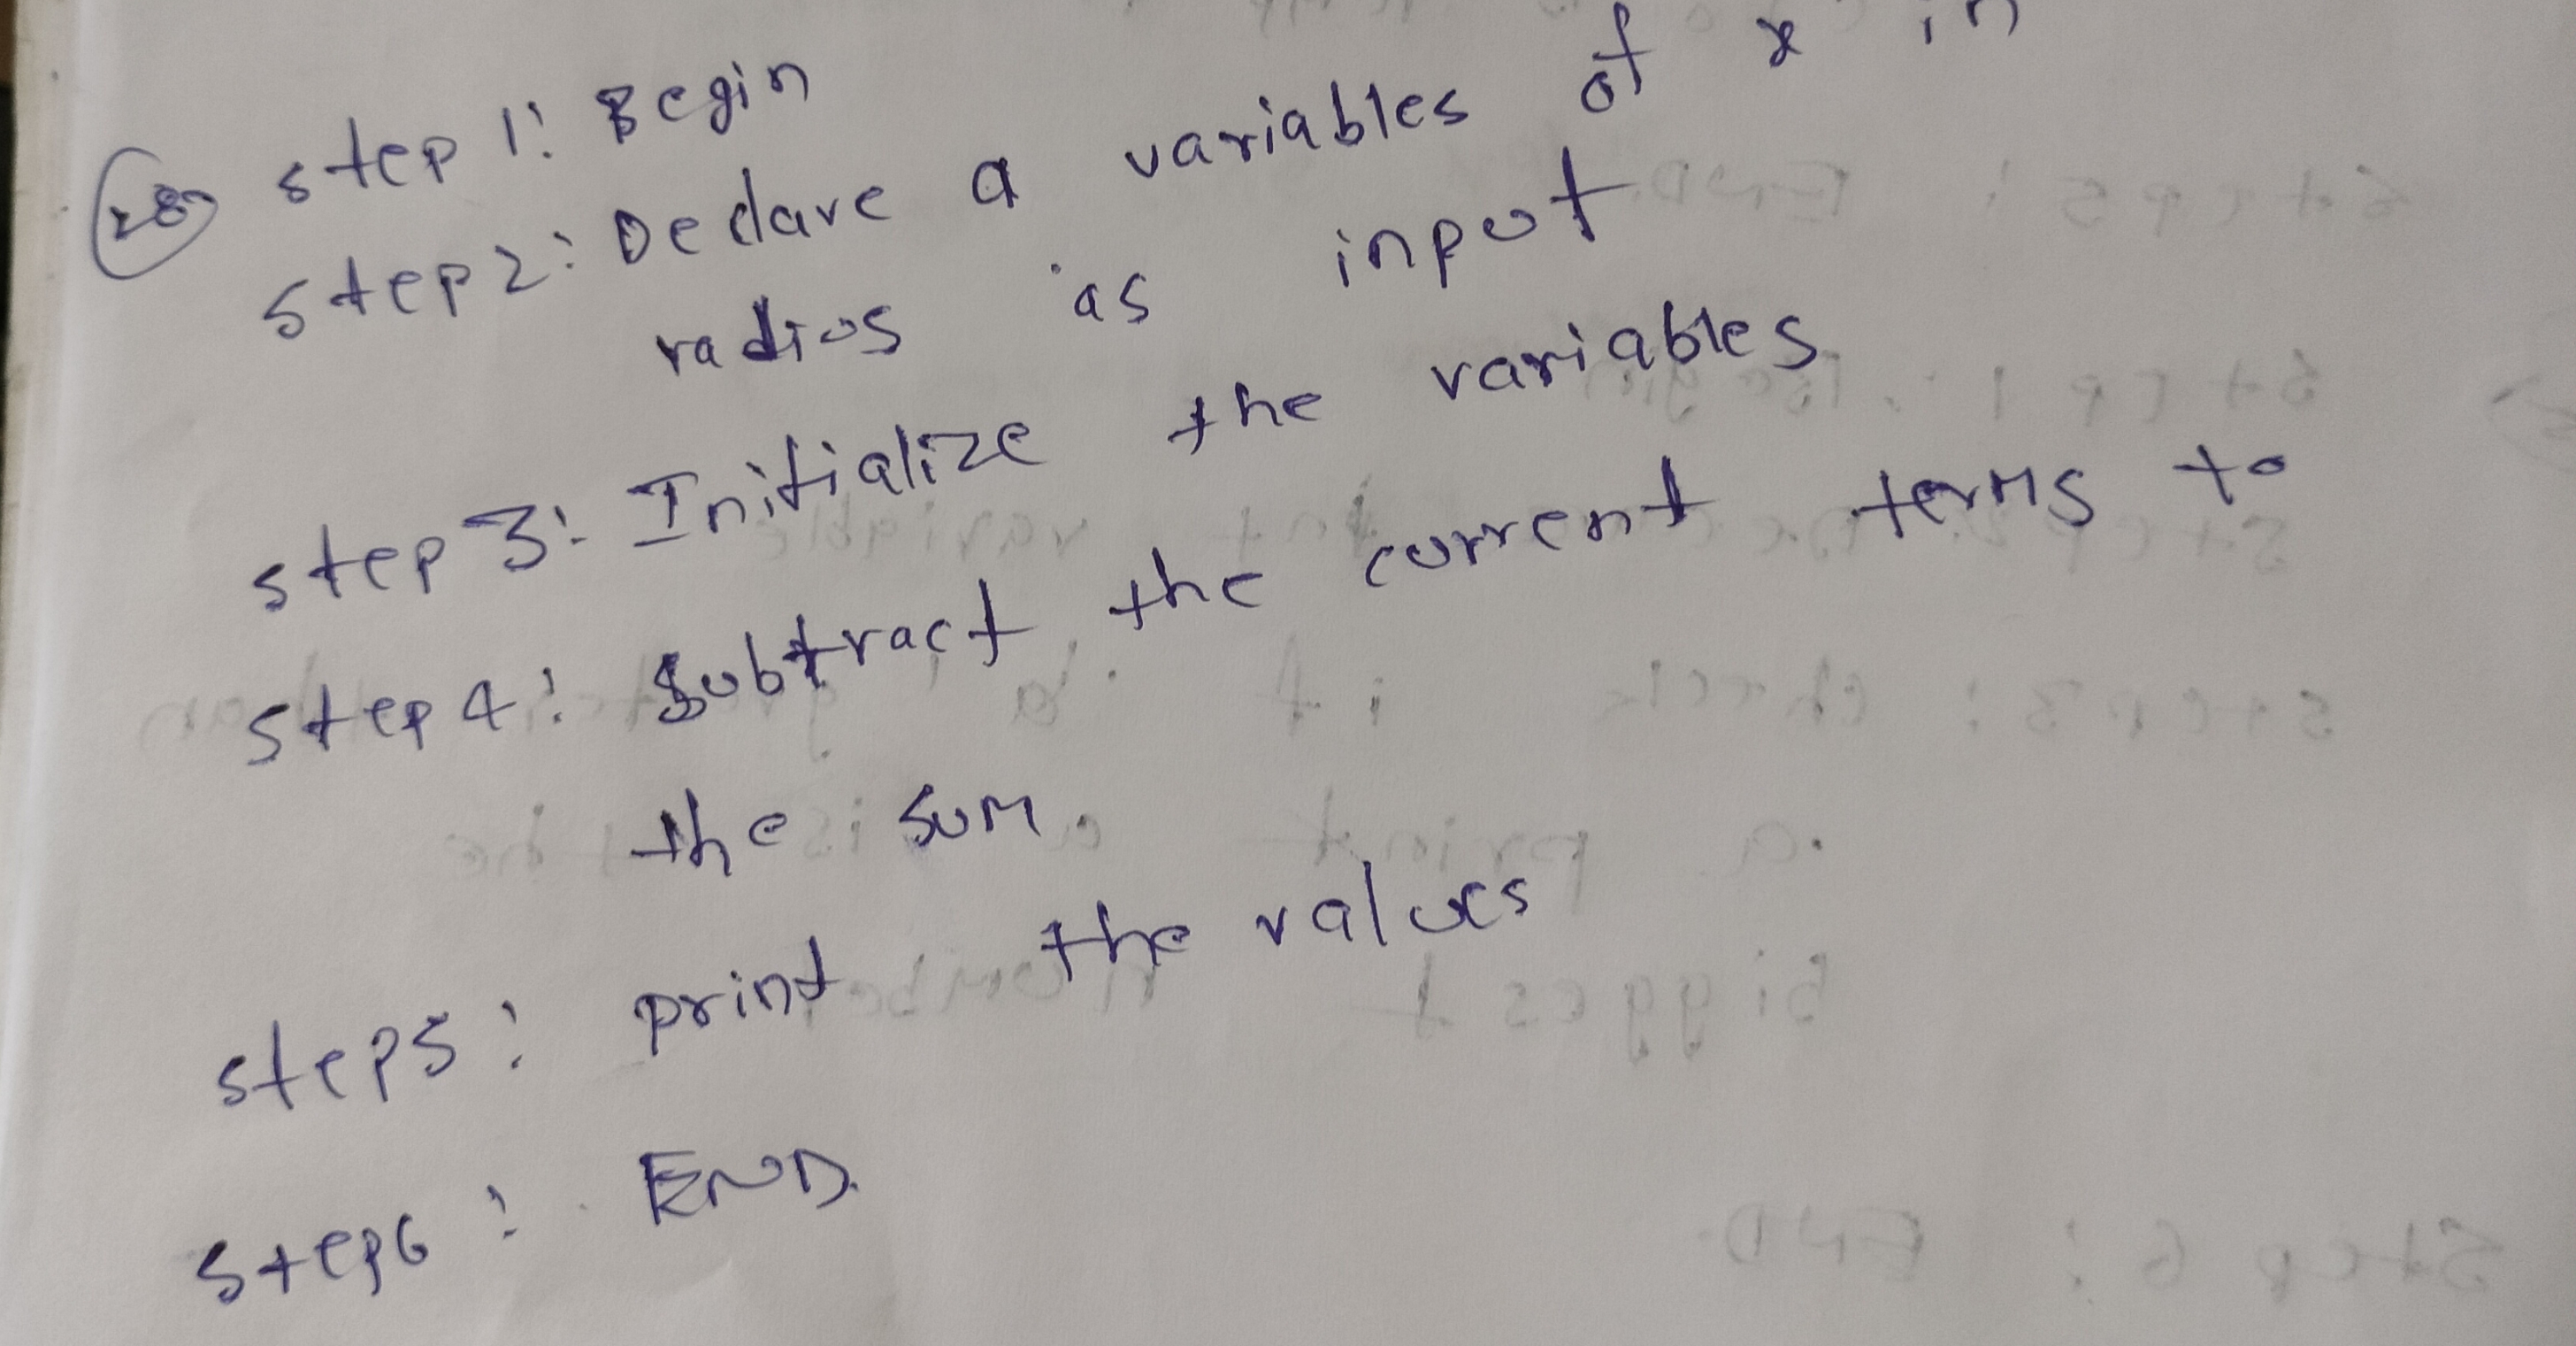 28) step 1: Begin
step 2: Declare a variables of x in
radius as input
step 3: Initialize the variables
step 4: Subtract the current terms to
the sum.
step 5: print the values
step 6: END.